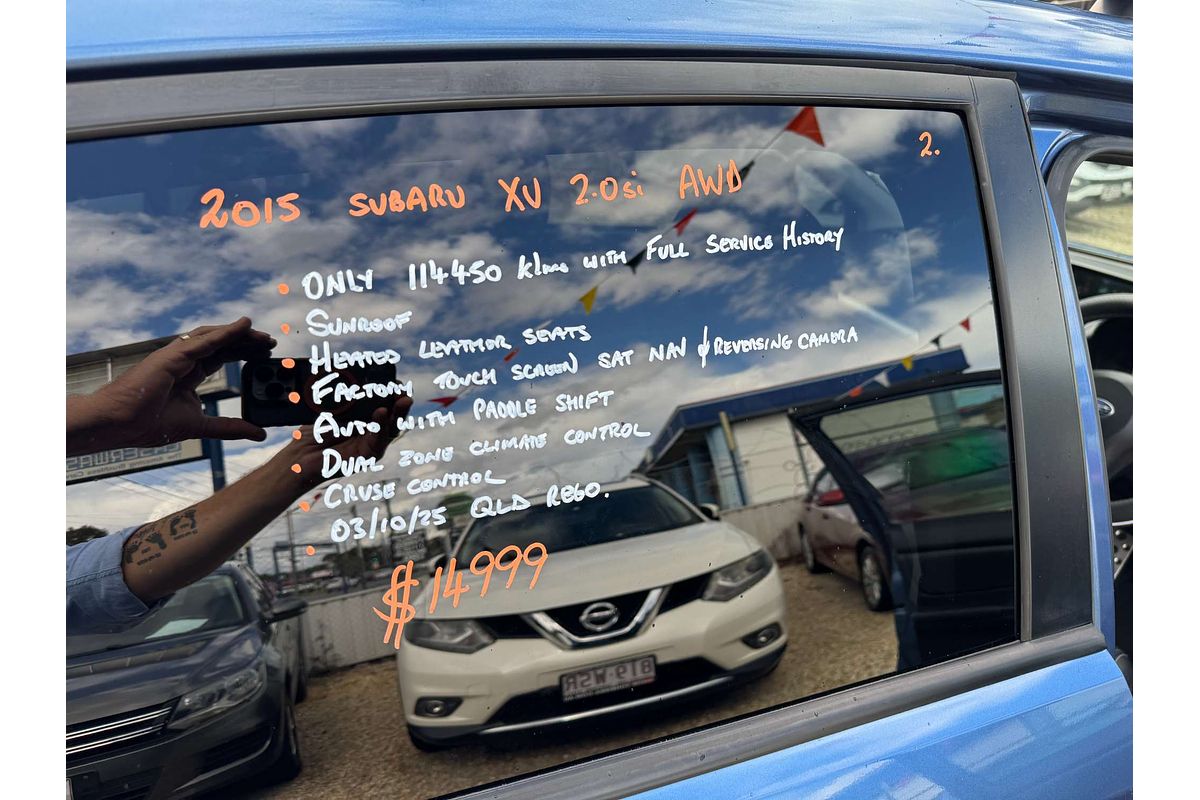 2.
2015 SUBARU XV 2.0si AWD
• ONLY 114450 klms WITH FULL SERVICE HISTORY
• SUNROOF
• HEATED LEATHER SEATS
• FACTORY TOUCH SCREEN SAT NAV & REVERSING CAMERA
• AUTO WITH PADDLE SHIFT
• DUAL ZONE CLIMATE CONTROL
• CRUSE CONTROL
• 03/10/25 QLD REGO.
$14999